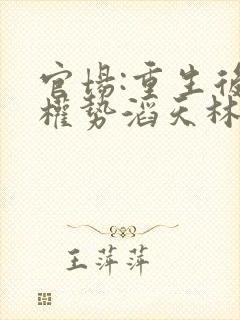 官場:重生後
權勢滔天林
王萍萍